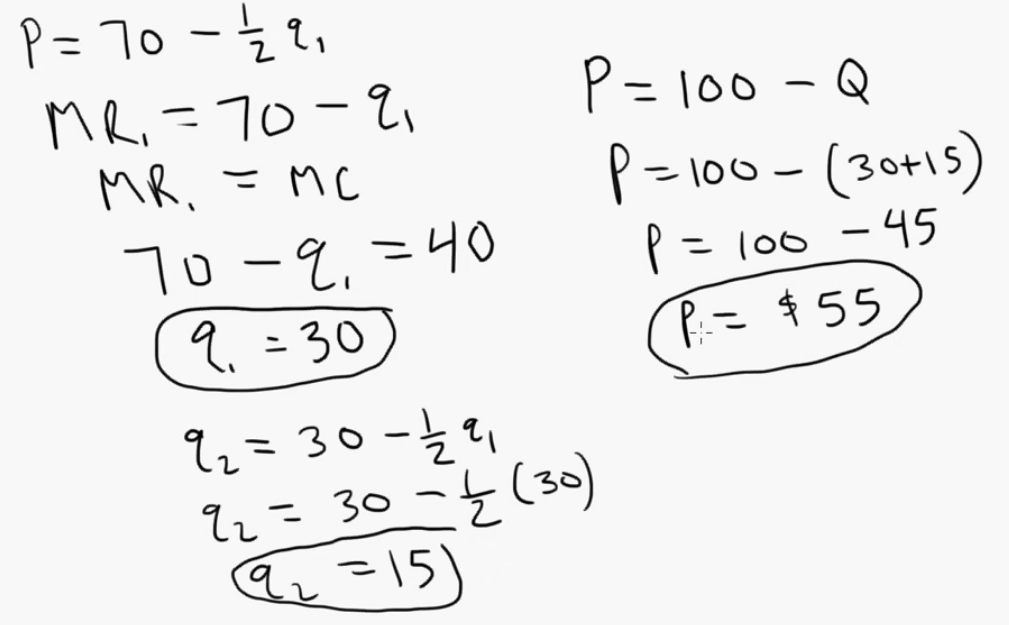 P = 70 - 1/2 q₁
MR₁ = 70 - q₁
MR₁ = MC
70 - q₁ = 40
q₁ = 30
q₂ = 30 - 1/2 q₁
q₂ = 30 - 1/2 (30)
q₂ = 15
P = 100 - Q
P = 100 - (30+15)
P = 100 - 45
P = $55